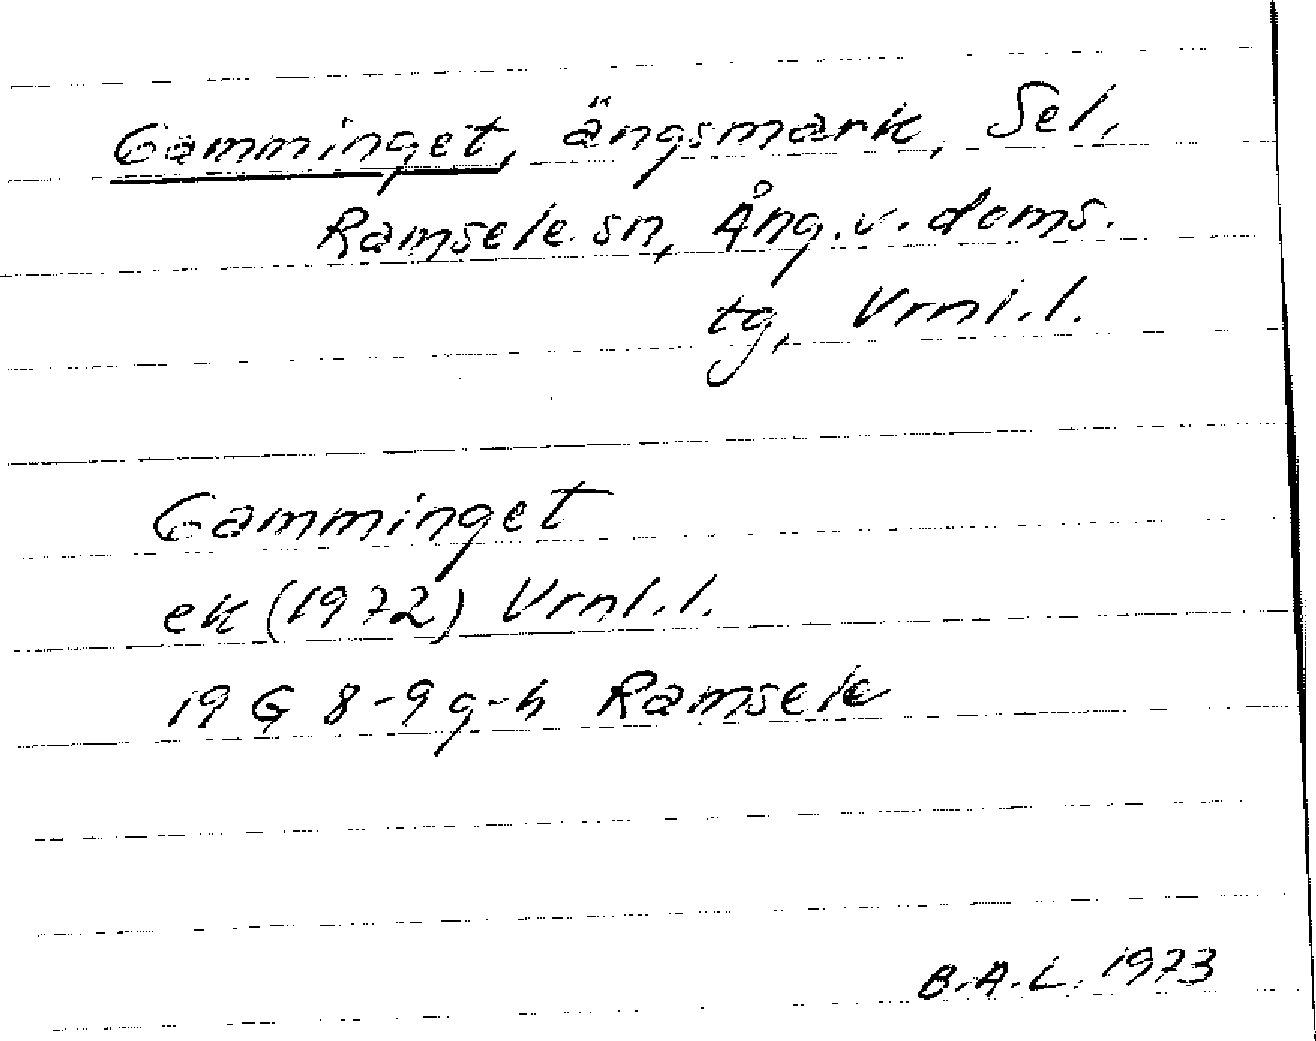 Gamminget, ängsmark, Sel,
Ramsele sn, Ång.v.doms.
tg, Vrnl.l.
Gamminget
ek (1972) Vrnl.l.
19 G 8-9 g-h Ramsele
B.A.L. 1973